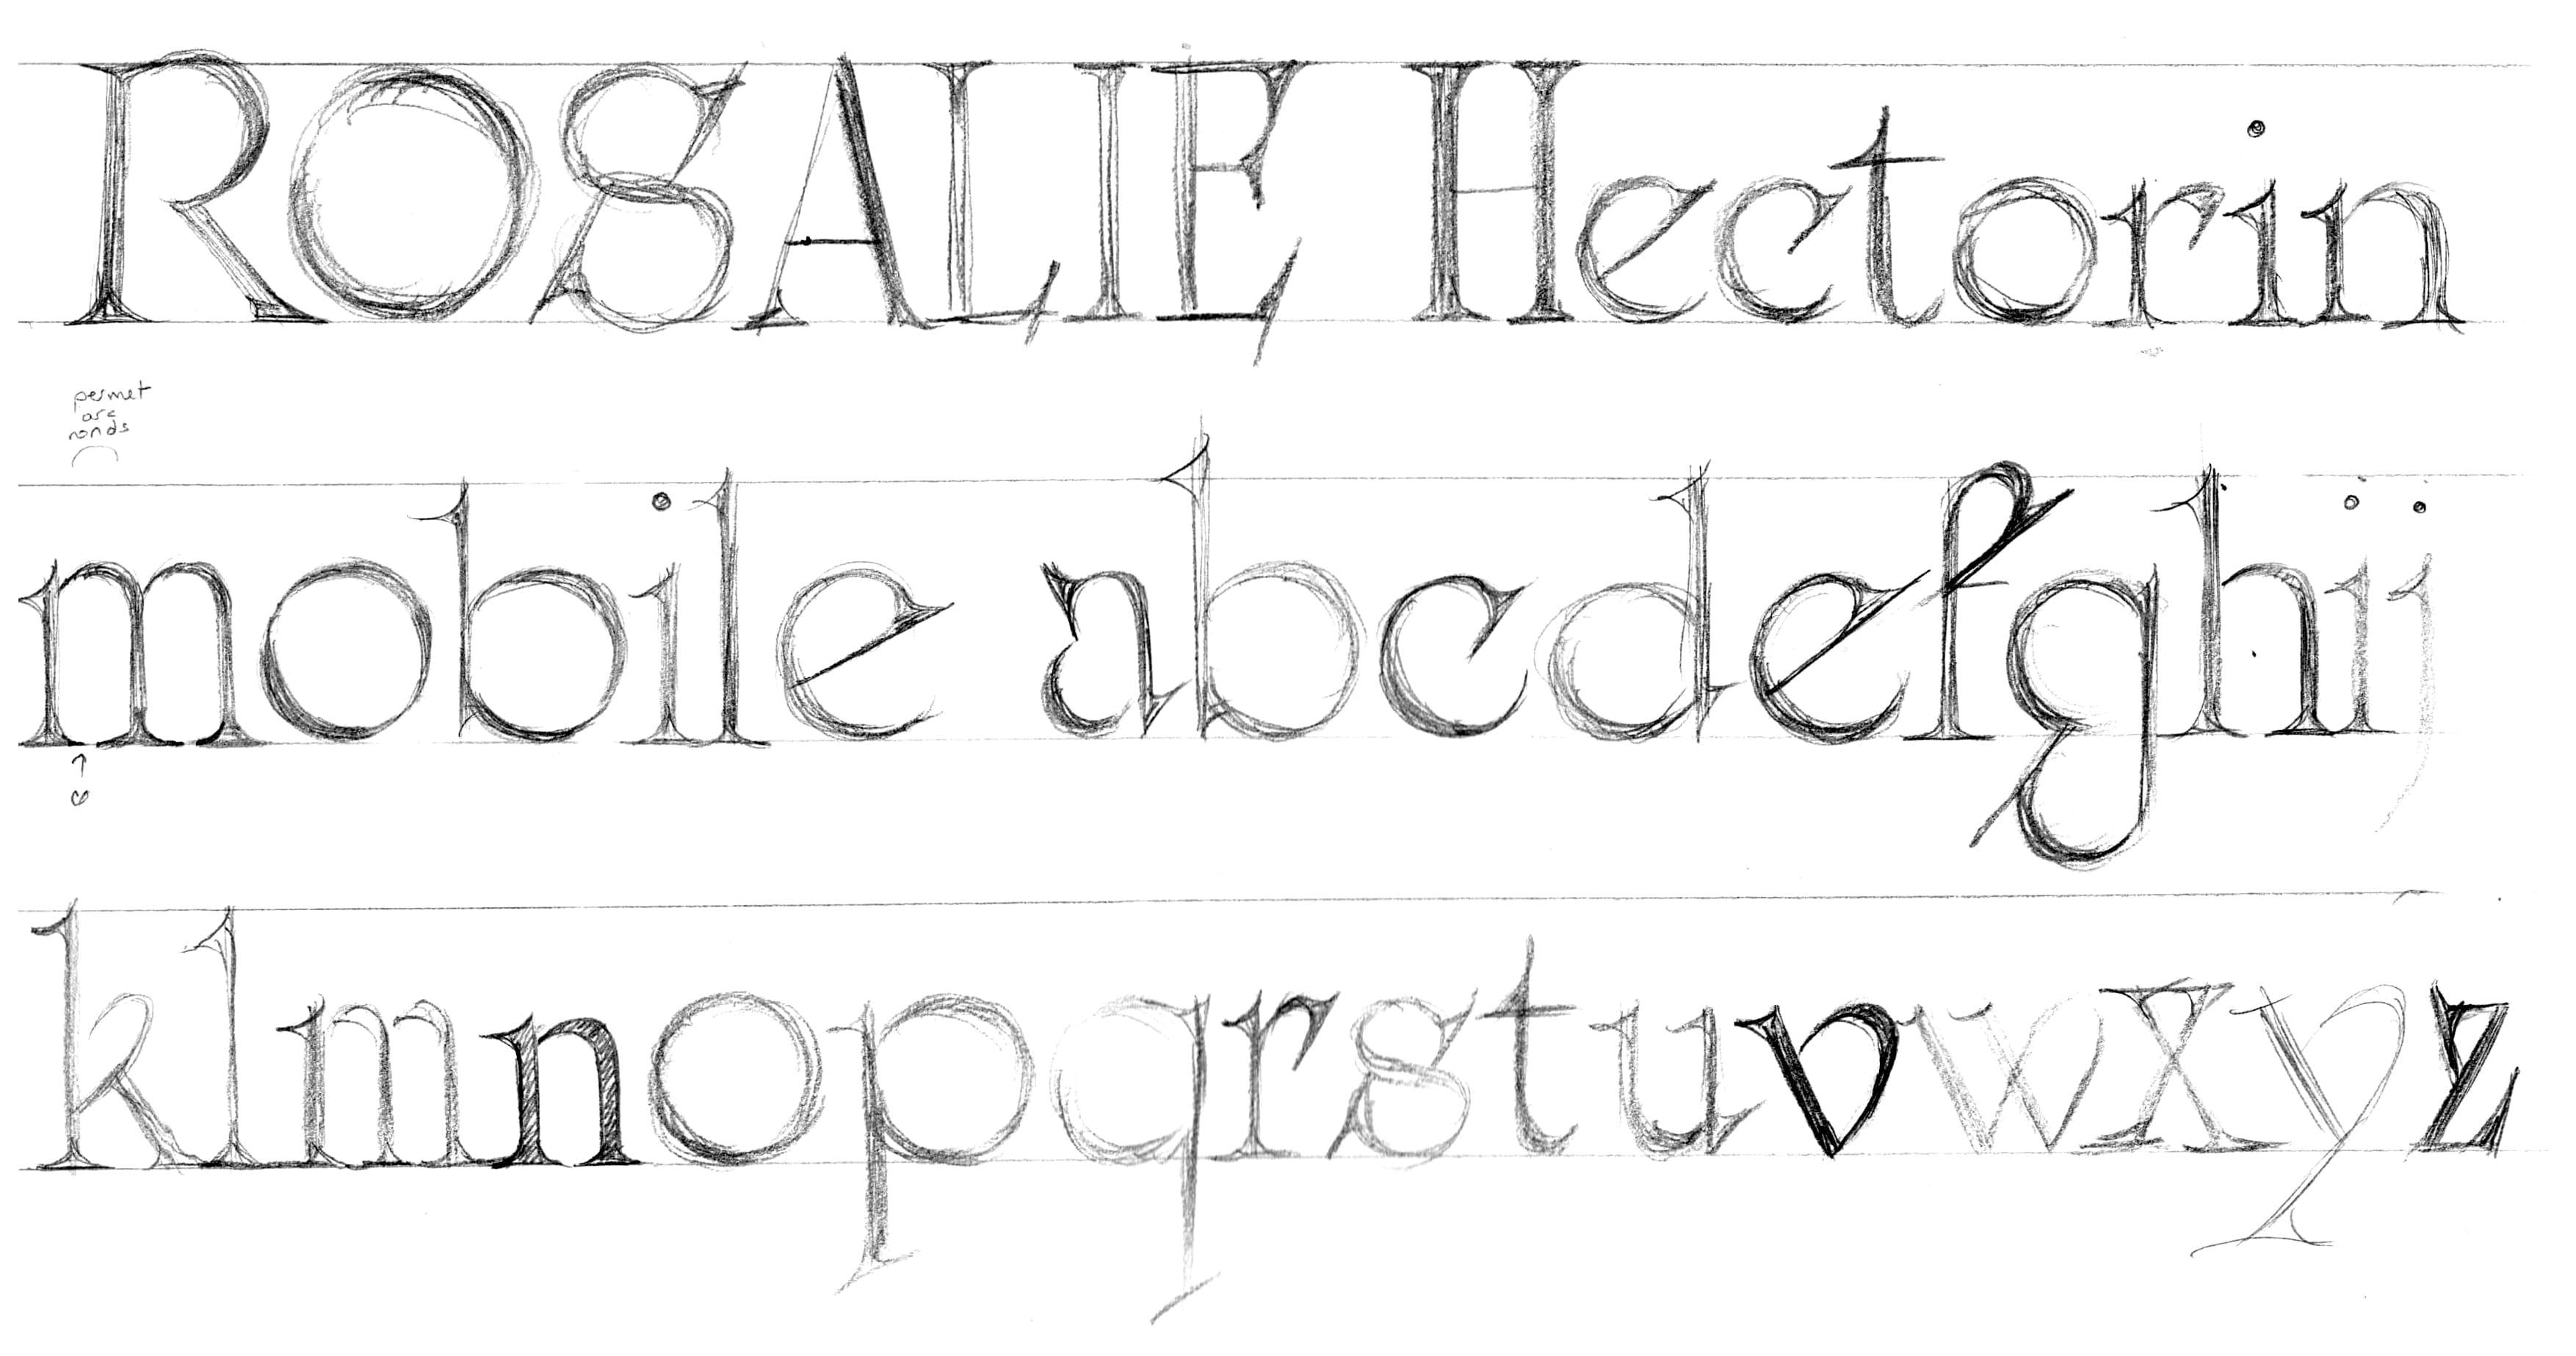 ROSALIE Hectorin
permet
arc
ronds
mobile abcdefghij
klmnopqrstuvwxyz